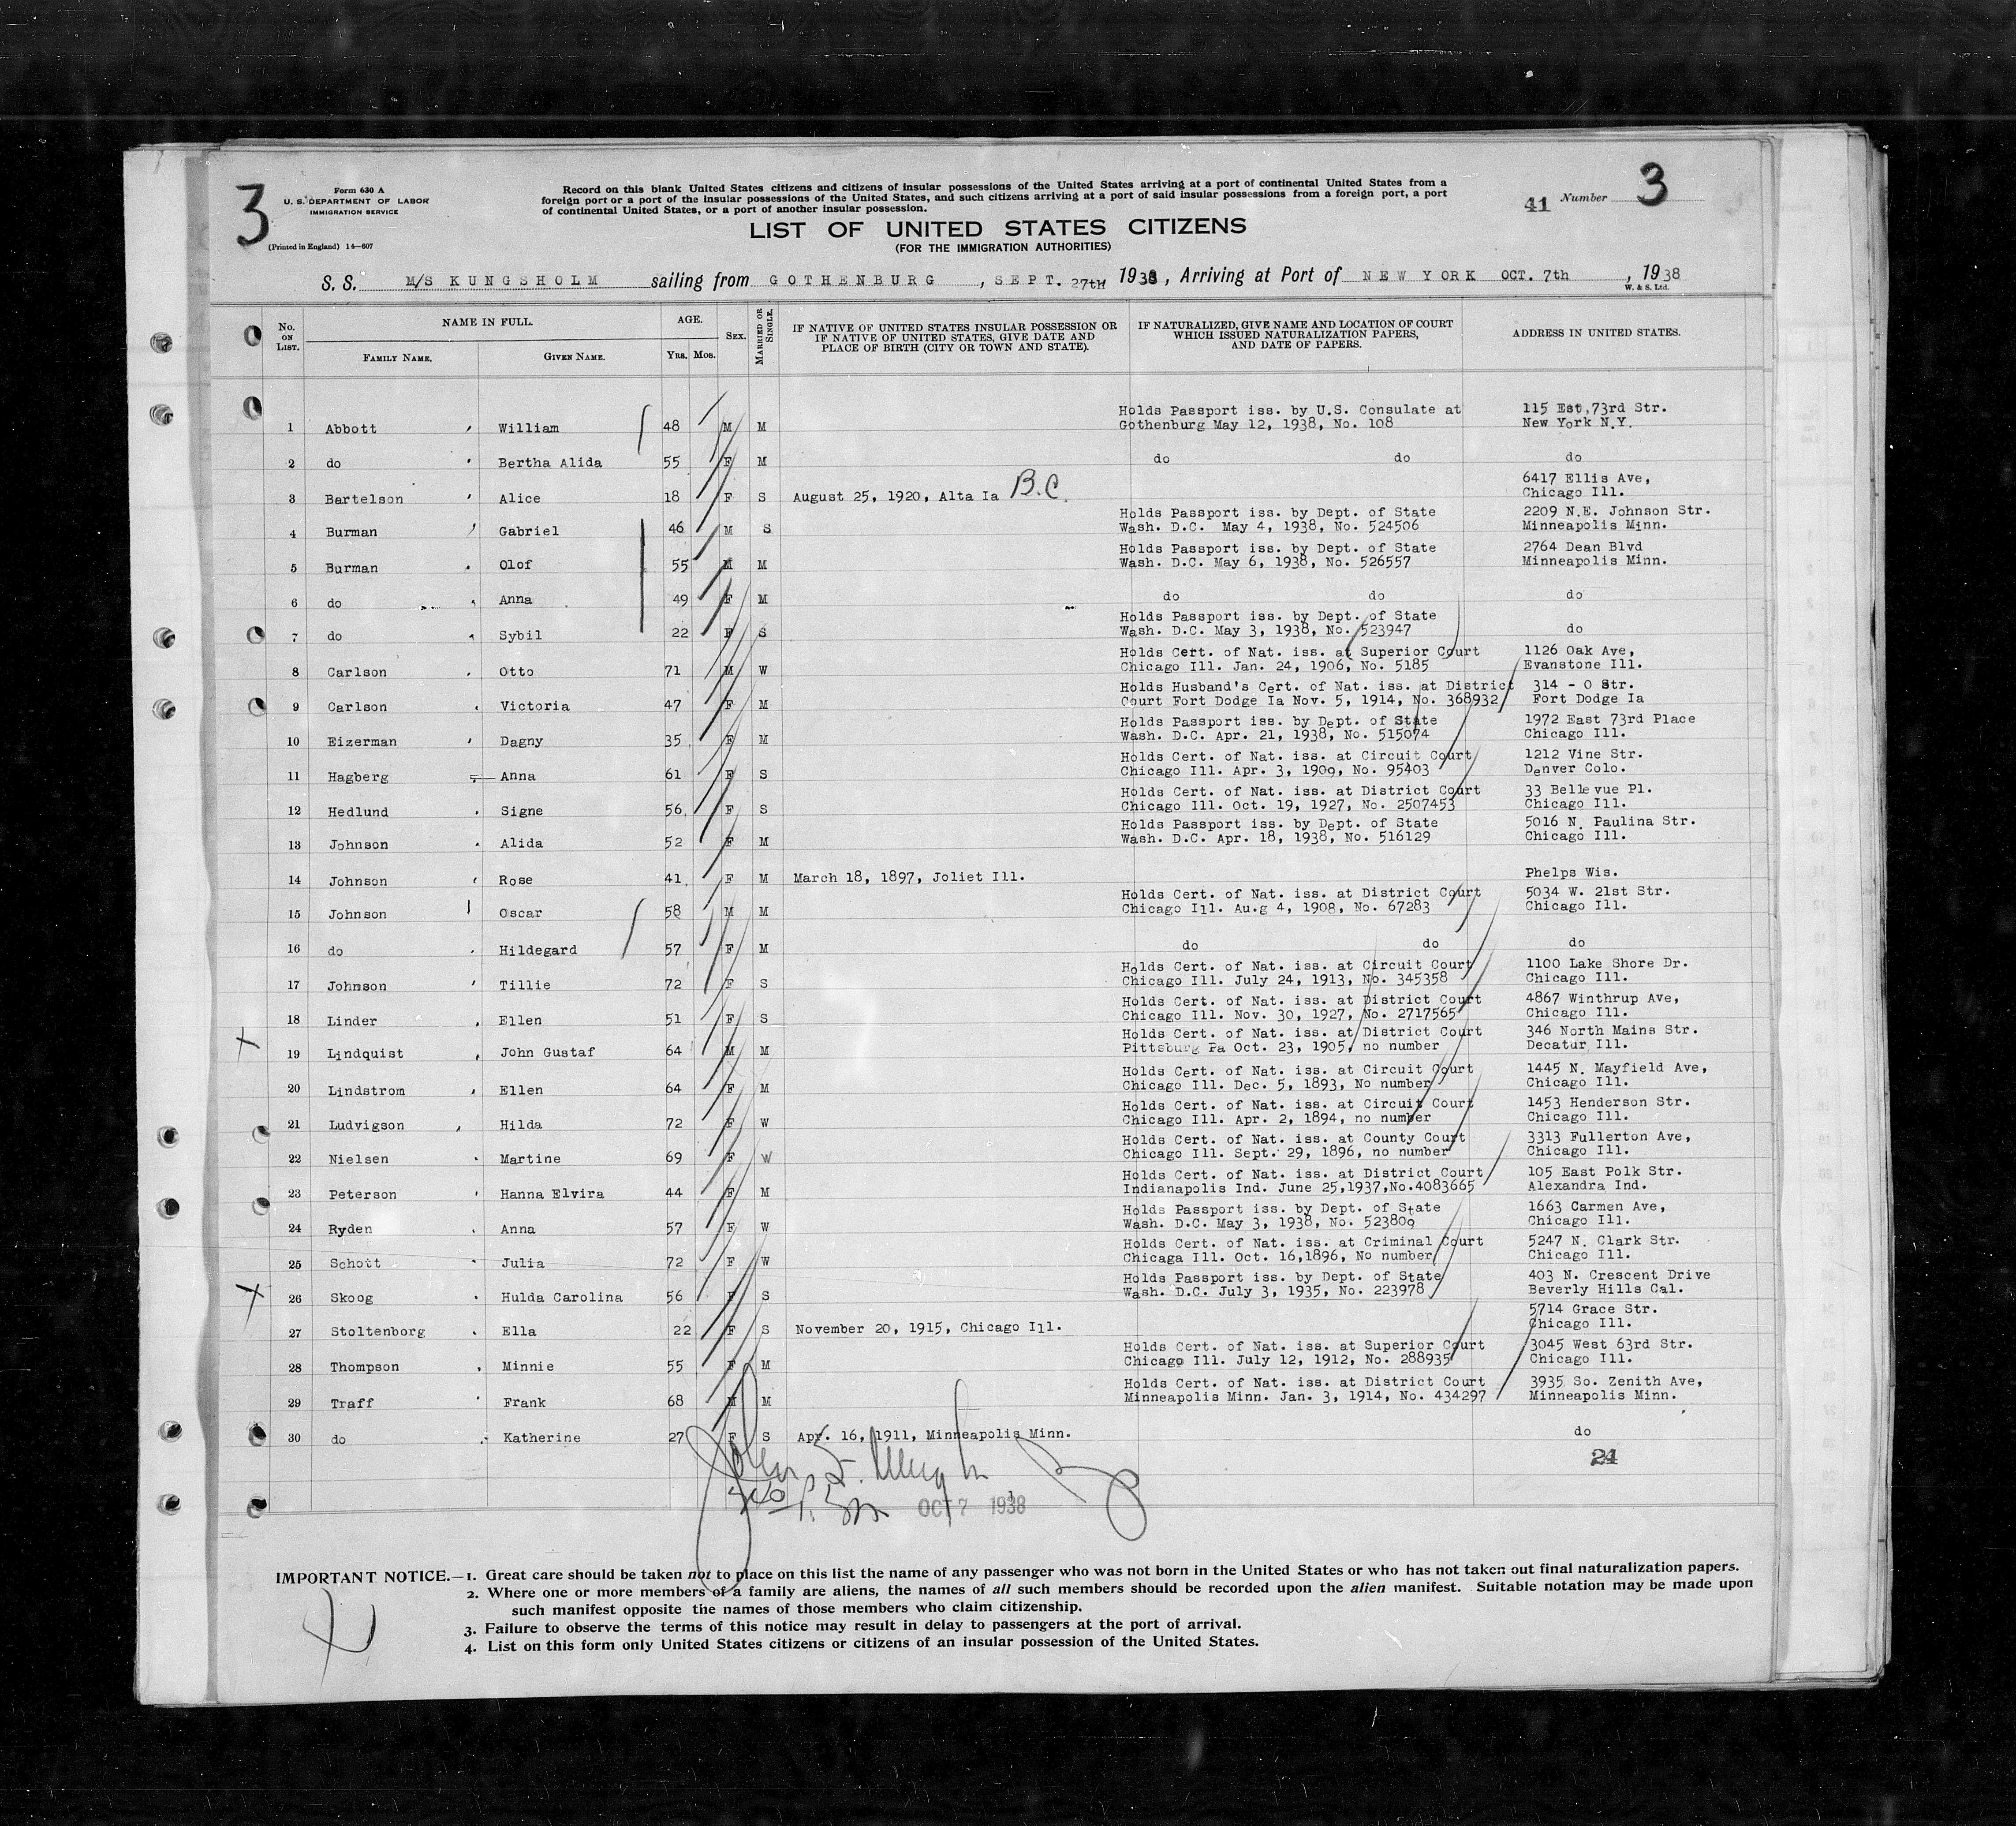 3
Form 630 A
U. S. DEPARTMENT OF LABOR
IMMIGRATION SERVICE
(Printed in England) 14—607
Record on this blank United States citizens and citizens of insular possessions of the United States arriving at a port of continental United States from a
foreign port or a port of the insular possessions of the United States, and such citizens arriving at a port of said insular possessions from a foreign port, a port
of continental United States, or a port of another insular possession.
41 Number 3
LIST OF UNITED STATES CITIZENS
(FOR THE IMMIGRATION AUTHORITIES)
S. S. M/S KUNGSHOLM sailing from GOTHENBURG, SEPT. 27th 1938, Arriving at Port of NEW YORK OCT. 7th, 1938
W. & S. Ltd.
No. ON LIST. NAME IN FULL. FAMILY NAME. GIVEN NAME. AGE. YRS. MOS. SEX. MARRIED OR SINGLE. IF NATIVE OF UNITED STATES INSULAR POSSESSION OR IF NATIVE OF UNITED STATES, GIVE DATE AND PLACE OF BIRTH (CITY OR TOWN AND STATE). IF NATURALIZED, GIVE NAME AND LOCATION OF COURT WHICH ISSUED NATURALIZATION PAPERS, AND DATE OF PAPERS. ADDRESS IN UNITED STATES.
Holds Passport iss. by U.S. Consulate at 115 Est,73rd Str.
1 Abbott William 48 M M Gothenburg May 12, 1938, No. 108 New York N.Y.
2 do Bertha Alida 55 F M do do do
6417 Ellis Ave,
3 Bartelson Alice 18 F S August 25, 1920, Alta Ia B.C. Chicago Ill.
Holds Passport iss. by Dept. of State 2209 N.E. Johnson Str.
4 Burman Gabriel 46 M S Wash. D.C. May 4, 1938, No. 524506 Minneapolis Minn.
Holds Passport iss. by Dept. of State 2764 Dean Blvd
5 Burman Olof 55 M M Wash. D.C. May 6, 1938, No. 526557 Minneapolis Minn.
6 do Anna 49 F M do do do
Holds Passport iss. by Dept. of State
7 do Sybil 22 F S Wash. D.C. May 3, 1938, No. 523947 do
Holds Cert. of Nat. iss. at Superior Court 1126 Oak Ave,
8 Carlson Otto 71 M W Chicago Ill. Jan. 24, 1906, No. 5185 Evanstone Ill.
Holds Husband's Cert. of Nat. iss. at District 314 - O Str.
9 Carlson Victoria 47 F M Court Fort Dodge Ia Nov. 5, 1914, No. 368932 Fort Dodge Ia
Holds Passport iss. by Dept. of State 1972 East 73rd Place
10 Eizerman Dagny 35 F M Wash. D.C. Apr. 21, 1938, No. 515074 Chicago Ill.
Holds Cert. of Nat. iss. at Circuit Court 1212 Vine Str.
11 Hagberg Anna 61 F S Chicago Ill. Apr. 3, 1909, No. 95403 Denver Colo.
Holds Cert. of Nat. iss. at District Court 33 Bellevue Pl.
12 Hedlund Signe 56 F S Chicago Ill. Oct. 19, 1927, No. 2507453 Chicago Ill.
Holds Passport iss. by Dept. of State 5016 N. Paulina Str.
13 Johnson Alida 52 F M Wash. D.C. Apr. 18, 1938, No. 516129 Chicago Ill.
14 Johnson Rose 41 F M March 18, 1897, Joliet Ill. Phelps Wis.
Holds Cert. of Nat. iss. at District Court 5034 W. 21st Str.
15 Johnson Oscar 58 M M Chicago Ill. Au.g 4, 1908, No. 67283 Chicago Ill.
16 do Hildegard 57 F M do do do
Holds Cert. of Nat. iss. at Circuit Court 1100 Lake Shore Dr.
17 Johnson Tillie 72 F S Chicago Ill. July 24, 1913, No. 345358 Chicago Ill.
Holds Cert. of Nat. iss. at District Court 4867 Winthrup Ave,
18 Linder Ellen 51 F S Chicago Ill. Nov. 30, 1927, No. 2717565 Chicago Ill.
Holds Cert. of Nat. iss. at District Court 346 North Mains Str.
19 Lindquist John Gustaf 64 M M Pittsburg Pa Oct. 23, 1905, no number Decatur Ill.
Holds Cert. of Nat. iss. at Circuit Court 1445 N. Mayfield Ave,
20 Lindstrom Ellen 64 F M Chicago Ill. Dec. 5, 1893, No number Chicago Ill.
Holds Cert. of Nat. iss. at Circuit Court 1453 Henderson Str.
21 Ludvigson Hilda 72 F W Chicago Ill. Apr. 2, 1894, no number Chicago Ill.
Holds Cert. of Nat. iss. at County Court 3313 Fullerton Ave,
22 Nielsen Martine 69 F W Chicago Ill. Sept. 29, 1896, no number Chicago Ill.
Holds Cert. of Nat. iss. at District Court 105 East Polk Str.
23 Peterson Hanna Elvira 44 F M Indianapolis Ind. June 25,1937,No.4083665 Alexandra Ind.
Holds Passport iss. by Dept. of State 1663 Carmen Ave,
24 Ryden Anna 57 F W Wash. D.C. May 3, 1938, No. 523809 Chicago Ill.
Holds Cert. of Nat. iss. at Criminal Court 5247 N. Clark Str.
25 Schott Julia 72 F W Chicaga Ill. Oct. 16,1896, No number Chicago Ill.
Holds Passport iss. by Dept. of State 403 N. Crescent Drive
26 Skoog Hulda Carolina 56 F S Wash. D.C. July 3, 1935, No. 223978 Beverly Hills Cal.
5714 Grace Str.
27 Stoltenborg Ella 22 F S November 20, 1915, Chicago Ill. Chicago Ill.
Holds Cert. of Nat. iss. at Superior Court 3045 West 63rd Str.
28 Thompson Minnie 55 F M Chicago Ill. July 12, 1912, No. 288935 Chicago Ill.
Holds Cert. of Nat. iss. at District Court 3935 So. Zenith Ave,
29 Traff Frank 68 M M Minneapolis Minn. Jan. 3, 1914, No. 434297 Minneapolis Minn.
30 do Katherine 27 F S Apr. 16, 1911, Minneapolis Minn. do
24
OCT 7 1938
IMPORTANT NOTICE.—1. Great care should be taken not to place on this list the name of any passenger who was not born in the United States or who has not taken out final naturalization papers.
2. Where one or more members of a family are aliens, the names of all such members should be recorded upon the alien manifest. Suitable notation may be made upon
such manifest opposite the names of those members who claim citizenship.
3. Failure to observe the terms of this notice may result in delay to passengers at the port of arrival.
4. List on this form only United States citizens or citizens of an insular possession of the United States.